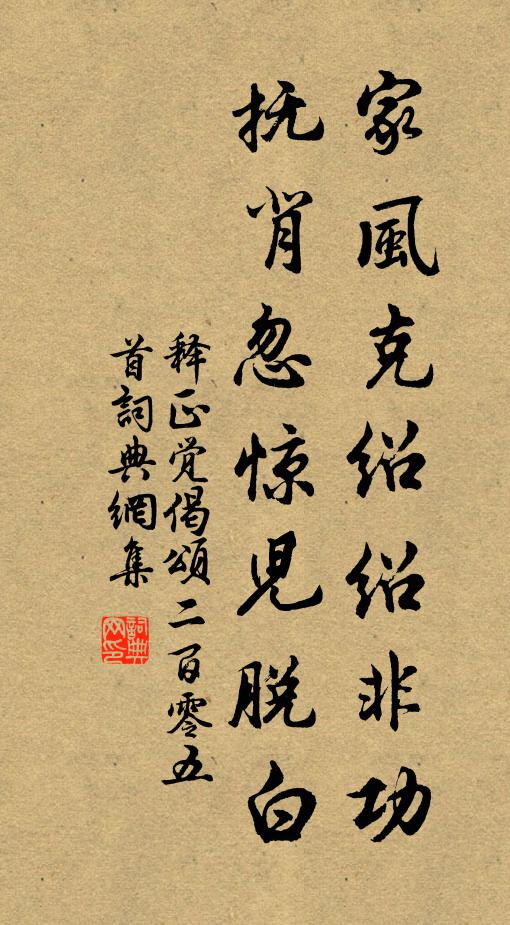 家風克绍绍非功
抚背忽惊児脱白
释正觉偈頌二百零五
首詞典網集
詞典网印